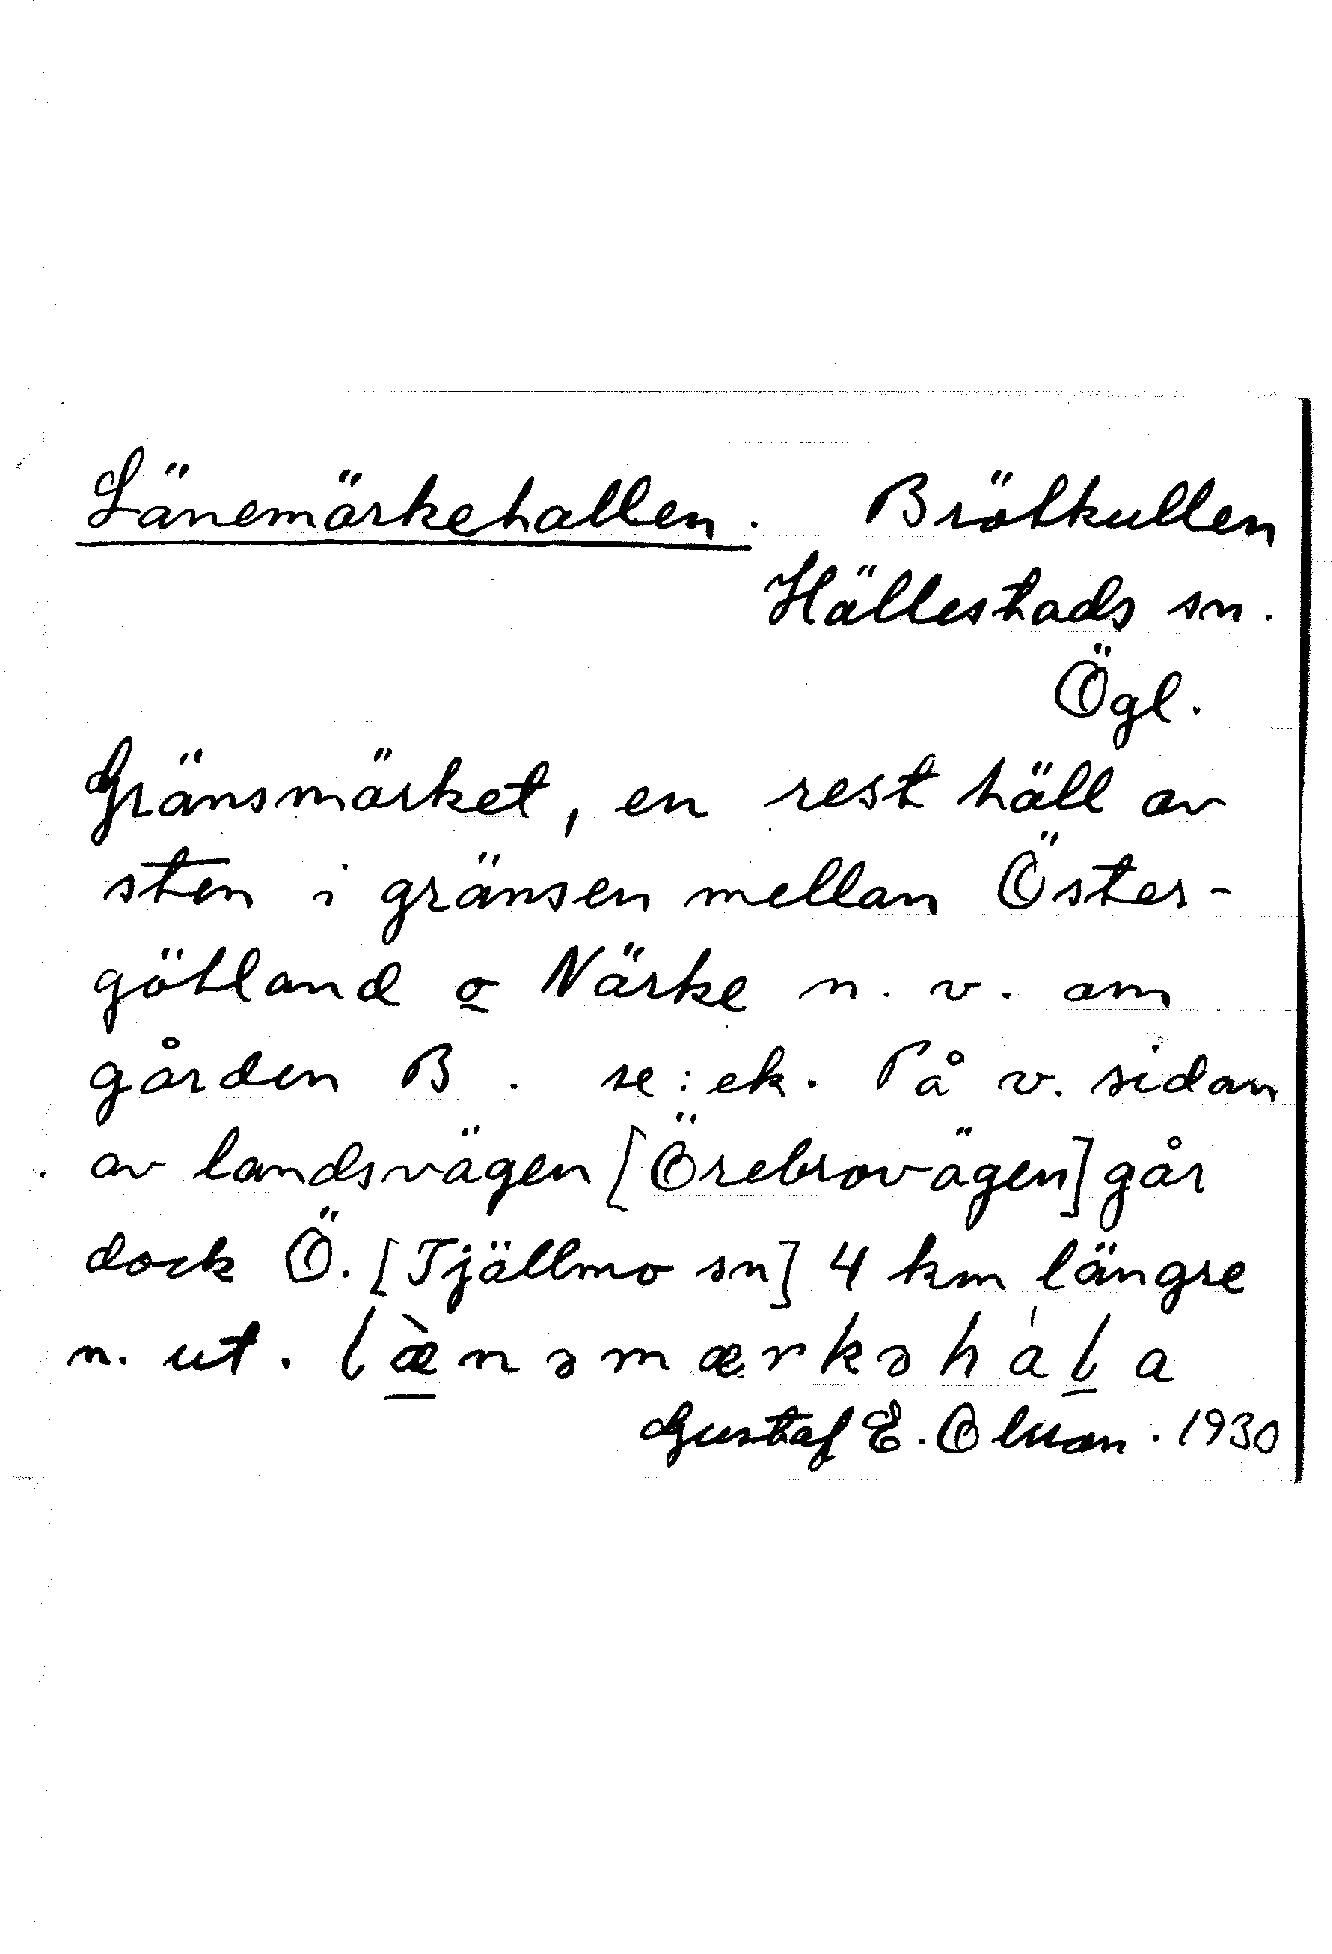 Länemärkehallen. Brötkullen
Hällestads sn.
Ögl.
Gränsmärket, en rest häll av
sten i gränsen mellan Öster-
götland o Närke n. v. om
gården B. se: ek. På v. sidan
av landsvägen [Örebrovägen] går
dock Ö. [Tjällmo sn] 4 km längre
n. ut. læ̀nəmærkəhàla
Gustaf E. Olsson. 1930